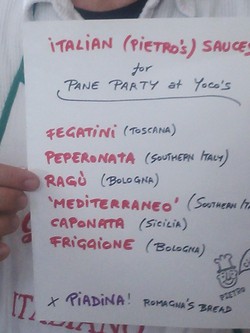 ITALIAN (PIETRO'S) SAUCES
for
PANE PARTY at YOCO'S
FEGATINI (TOSCANA)
PEPERONATA (SOUTHERN ITALY)
RAGÙ (BOLOGNA)
'MEDITERRANEO' (SOUTHERN
CAPONATA (SICILIA)
FRIGGIONE (BOLOGNA)
PIETRO
X PIADINA! ROMAGNA'S BREAD
ITALIANO